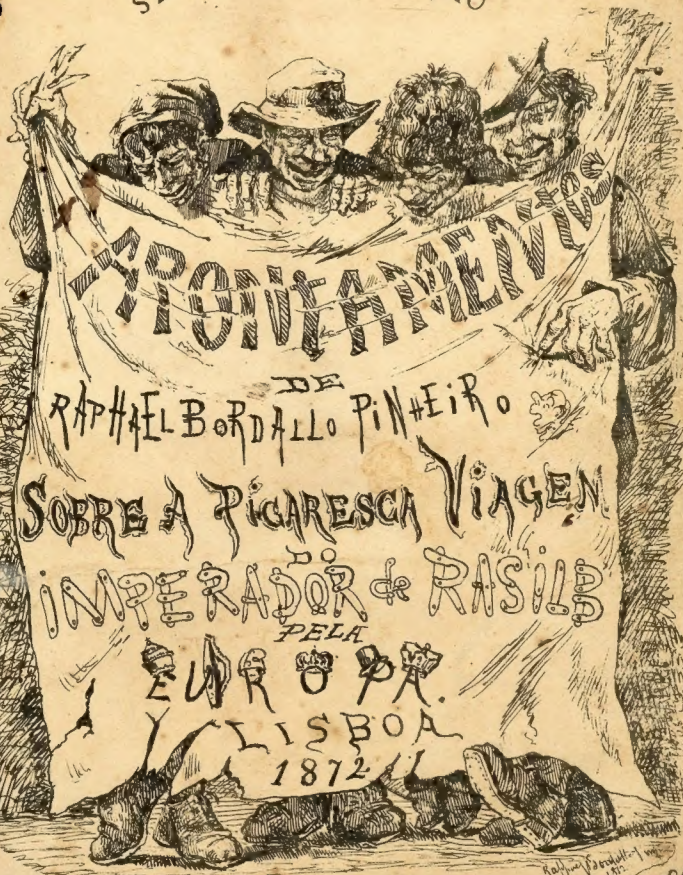 APONTAMENTOS
DE
RAPHAEL BORDALLO PINHEIRO
SOBRE A PICARESCA VIAGEM
DO
IMPERADOR de RASILB
PELA
EUROPA.
LISBOA
1872
1872